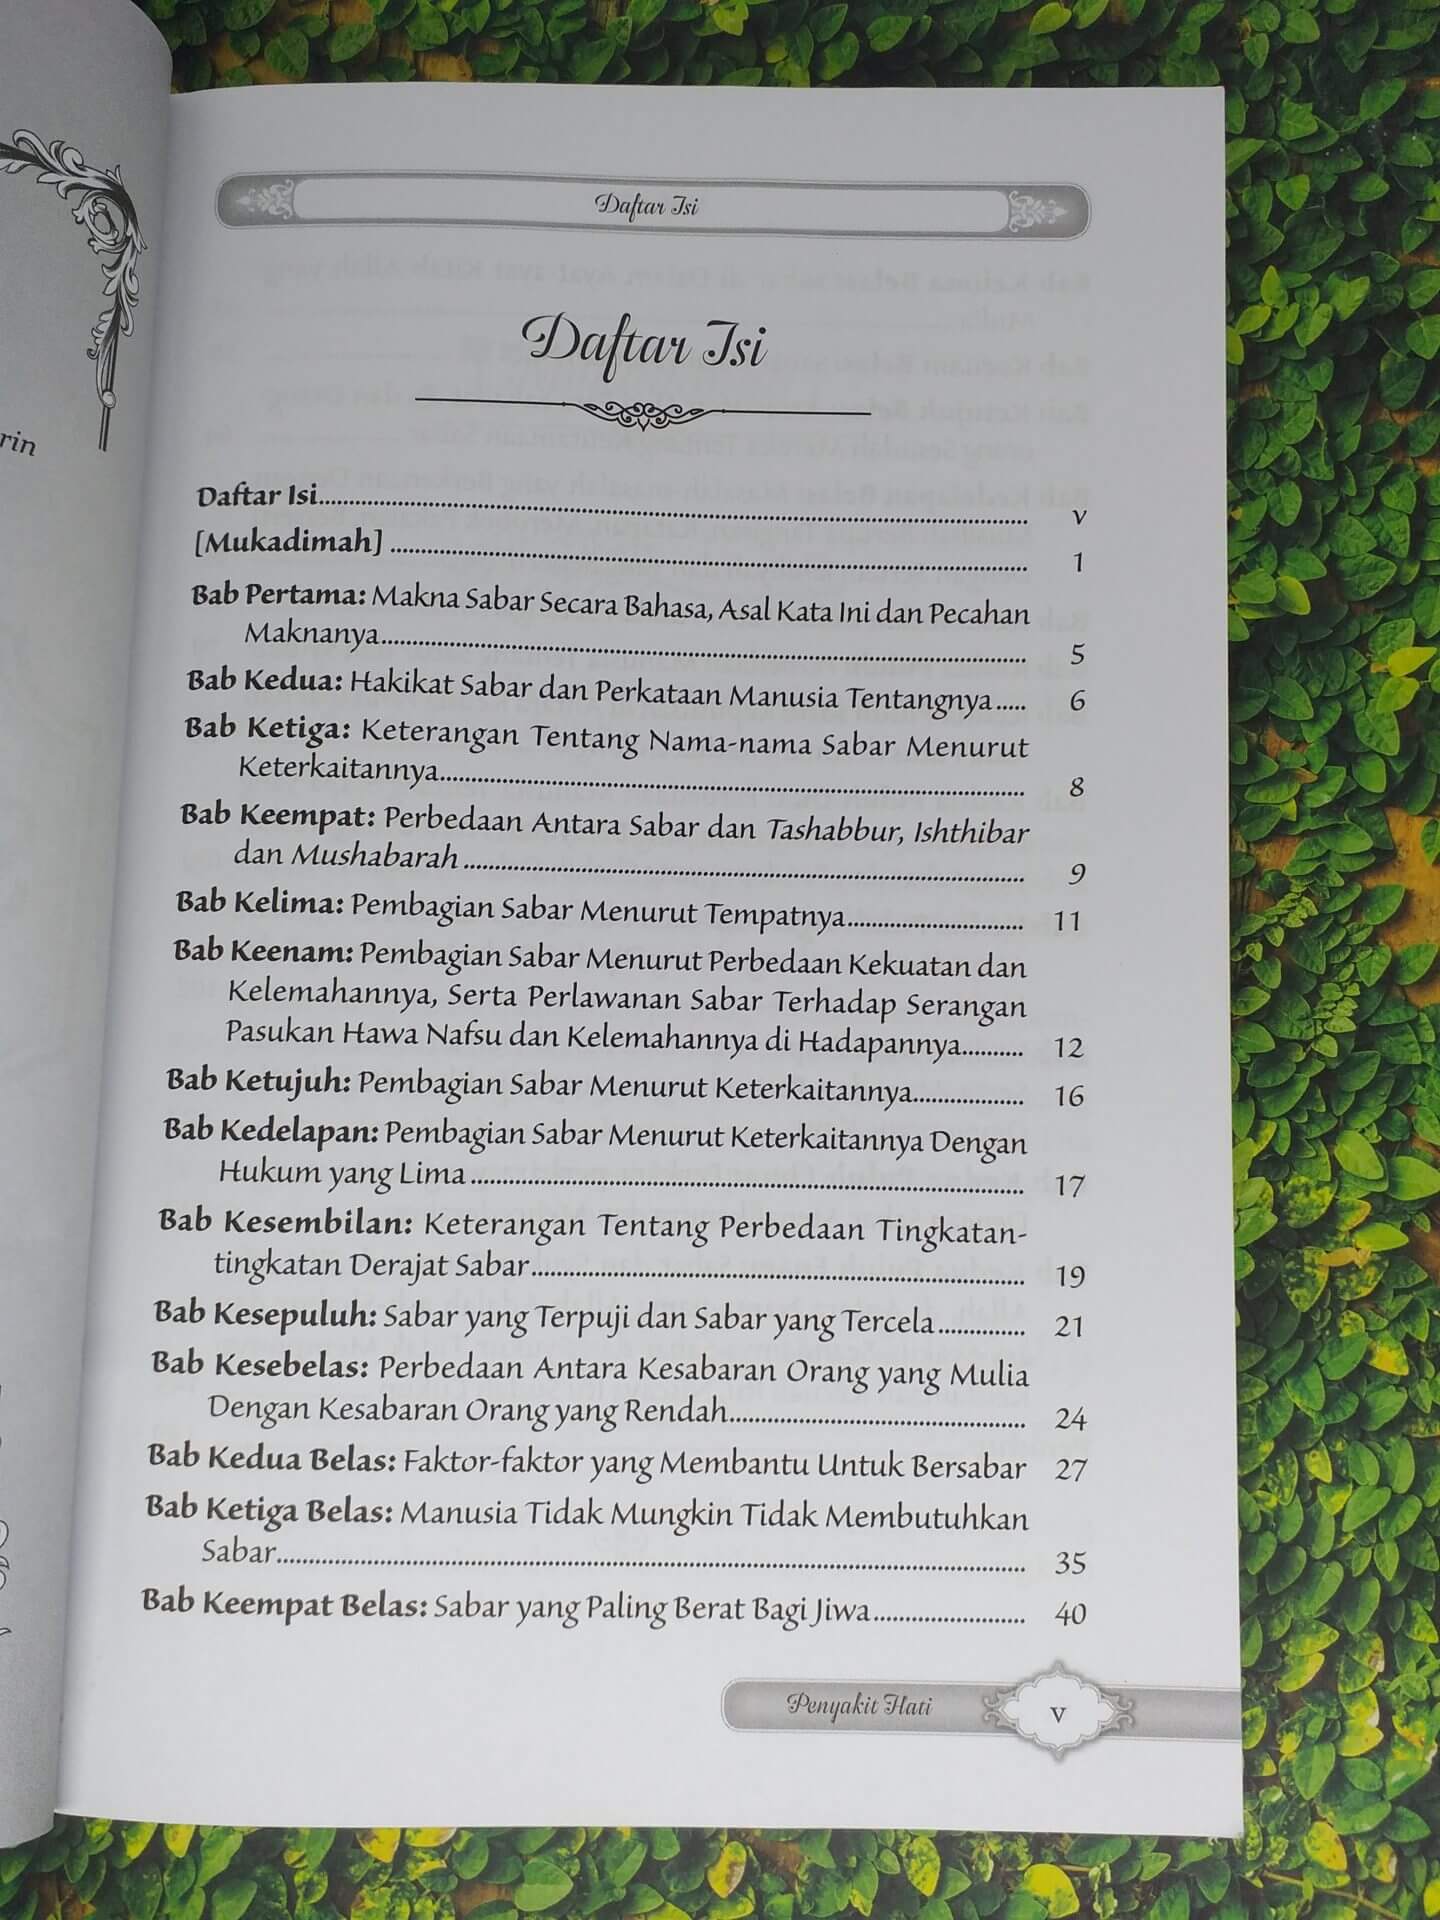 rin
Daftar Isi
Daftar Isi
Daftar Isi.......... v
[Mukadimah] .......... 1
Bab Pertama: Makna Sabar Secara Bahasa, Asal Kata Ini dan Pecahan
Maknanya.......... 5
Bab Kedua: Hakikat Sabar dan Perkataan Manusia Tentangnya..... 6
Bab Ketiga: Keterangan Tentang Nama-nama Sabar Menurut
Keterkaitannya.......... 8
Bab Keempat: Perbedaan Antara Sabar dan Tashabbur, Ishthibar
dan Mushabarah .......... 9
Bab Kelima: Pembagian Sabar Menurut Tempatnya.......... 11
Bab Keenam: Pembagian Sabar Menurut Perbedaan Kekuatan dan
Kelemahannya, Serta Perlawanan Sabar Terhadap Serangan
Pasukan Hawa Nafsu dan Kelemahannya di Hadapannya.......... 12
Bab Ketujuh: Pembagian Sabar Menurut Keterkaitannya.......... 16
Bab Kedelapan: Pembagian Sabar Menurut Keterkaitannya Dengan
Hukum yang Lima .......... 17
Bab Kesembilan: Keterangan Tentang Perbedaan Tingkatan-
tingkatan Derajat Sabar.......... 19
Bab Kesepuluh: Sabar yang Terpuji dan Sabar yang Tercela.......... 21
Bab Kesebelas: Perbedaan Antara Kesabaran Orang yang Mulia
Dengan Kesabaran Orang yang Rendah.......... 24
Bab Kedua Belas: Faktor-faktor yang Membantu Untuk Bersabar 27
Bab Ketiga Belas: Manusia Tidak Mungkin Tidak Membutuhkan
Sabar.......... 35
Bab Keempat Belas: Sabar yang Paling Berat Bagi Jiwa.......... 40
Penyakit Hati v